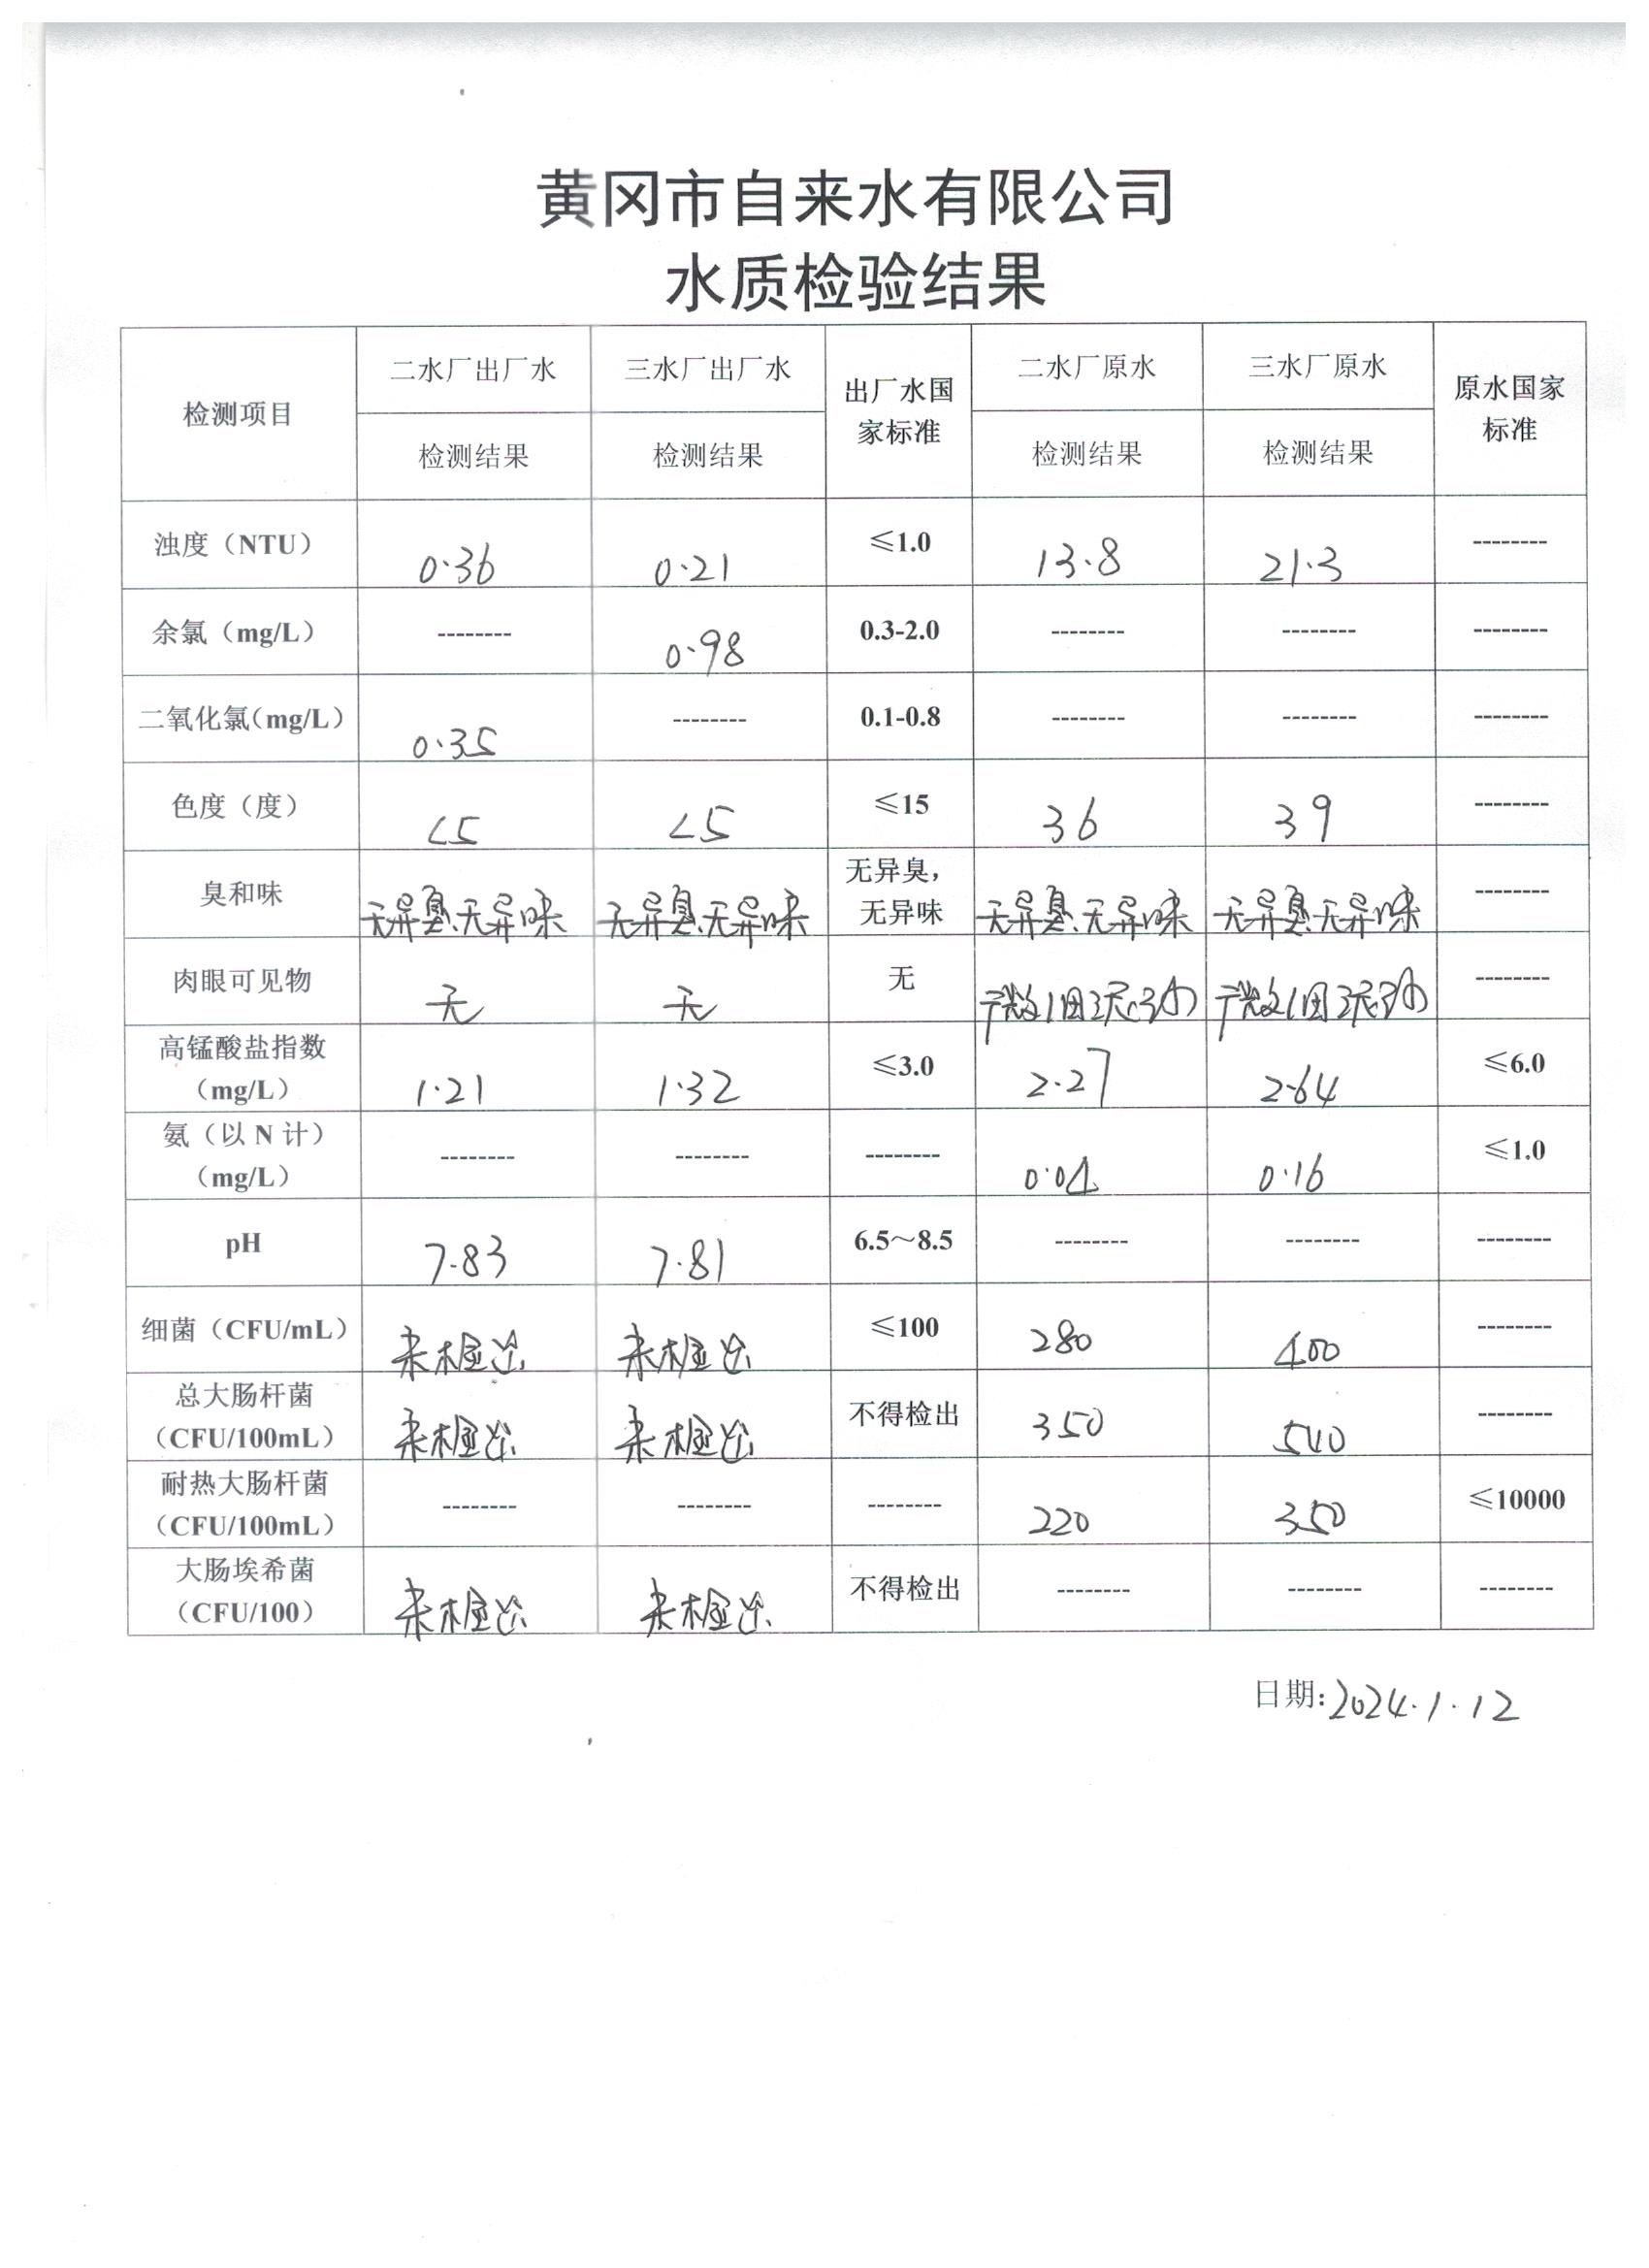 黄冈市自来水有限公司
水质检验结果
检测项目 二水厂出厂水 三水厂出厂水 出厂水国家标准 二水厂原水 三水厂原水 原水国家标准
检测结果 检测结果 检测结果 检测结果
浊度（NTU） 0.36 0.21 ≤1.0 13.8 21.3 --------
余氯（mg/L） -------- 0.98 0.3-2.0 -------- -------- --------
二氧化氯（mg/L） 0.35 -------- 0.1-0.8 -------- -------- --------
色度（度） <5 <5 ≤15 36 39 --------
臭和味 无异臭、无异味 无异臭、无异味 无异臭，无异味 无异臭、无异味 无异臭、无异味 --------
肉眼可见物 无 无 无 --------
高锰酸盐指数（mg/L） 1.21 1.32 ≤3.0 2.27 2.64 ≤6.0
氨（以 N 计）（mg/L） -------- -------- -------- 0.04 0.16 ≤1.0
pH 7.83 7.81 6.5～8.5 -------- -------- --------
细菌（CFU/mL） 未检出 未检出 ≤100 280 400 --------
总大肠杆菌（CFU/100mL） 未检出 未检出 不得检出 350 540 --------
耐热大肠杆菌（CFU/100mL） -------- -------- -------- 220 350 ≤10000
大肠埃希菌（CFU/100） 未检出 未检出 不得检出 -------- -------- --------
日期: 2024.1.12